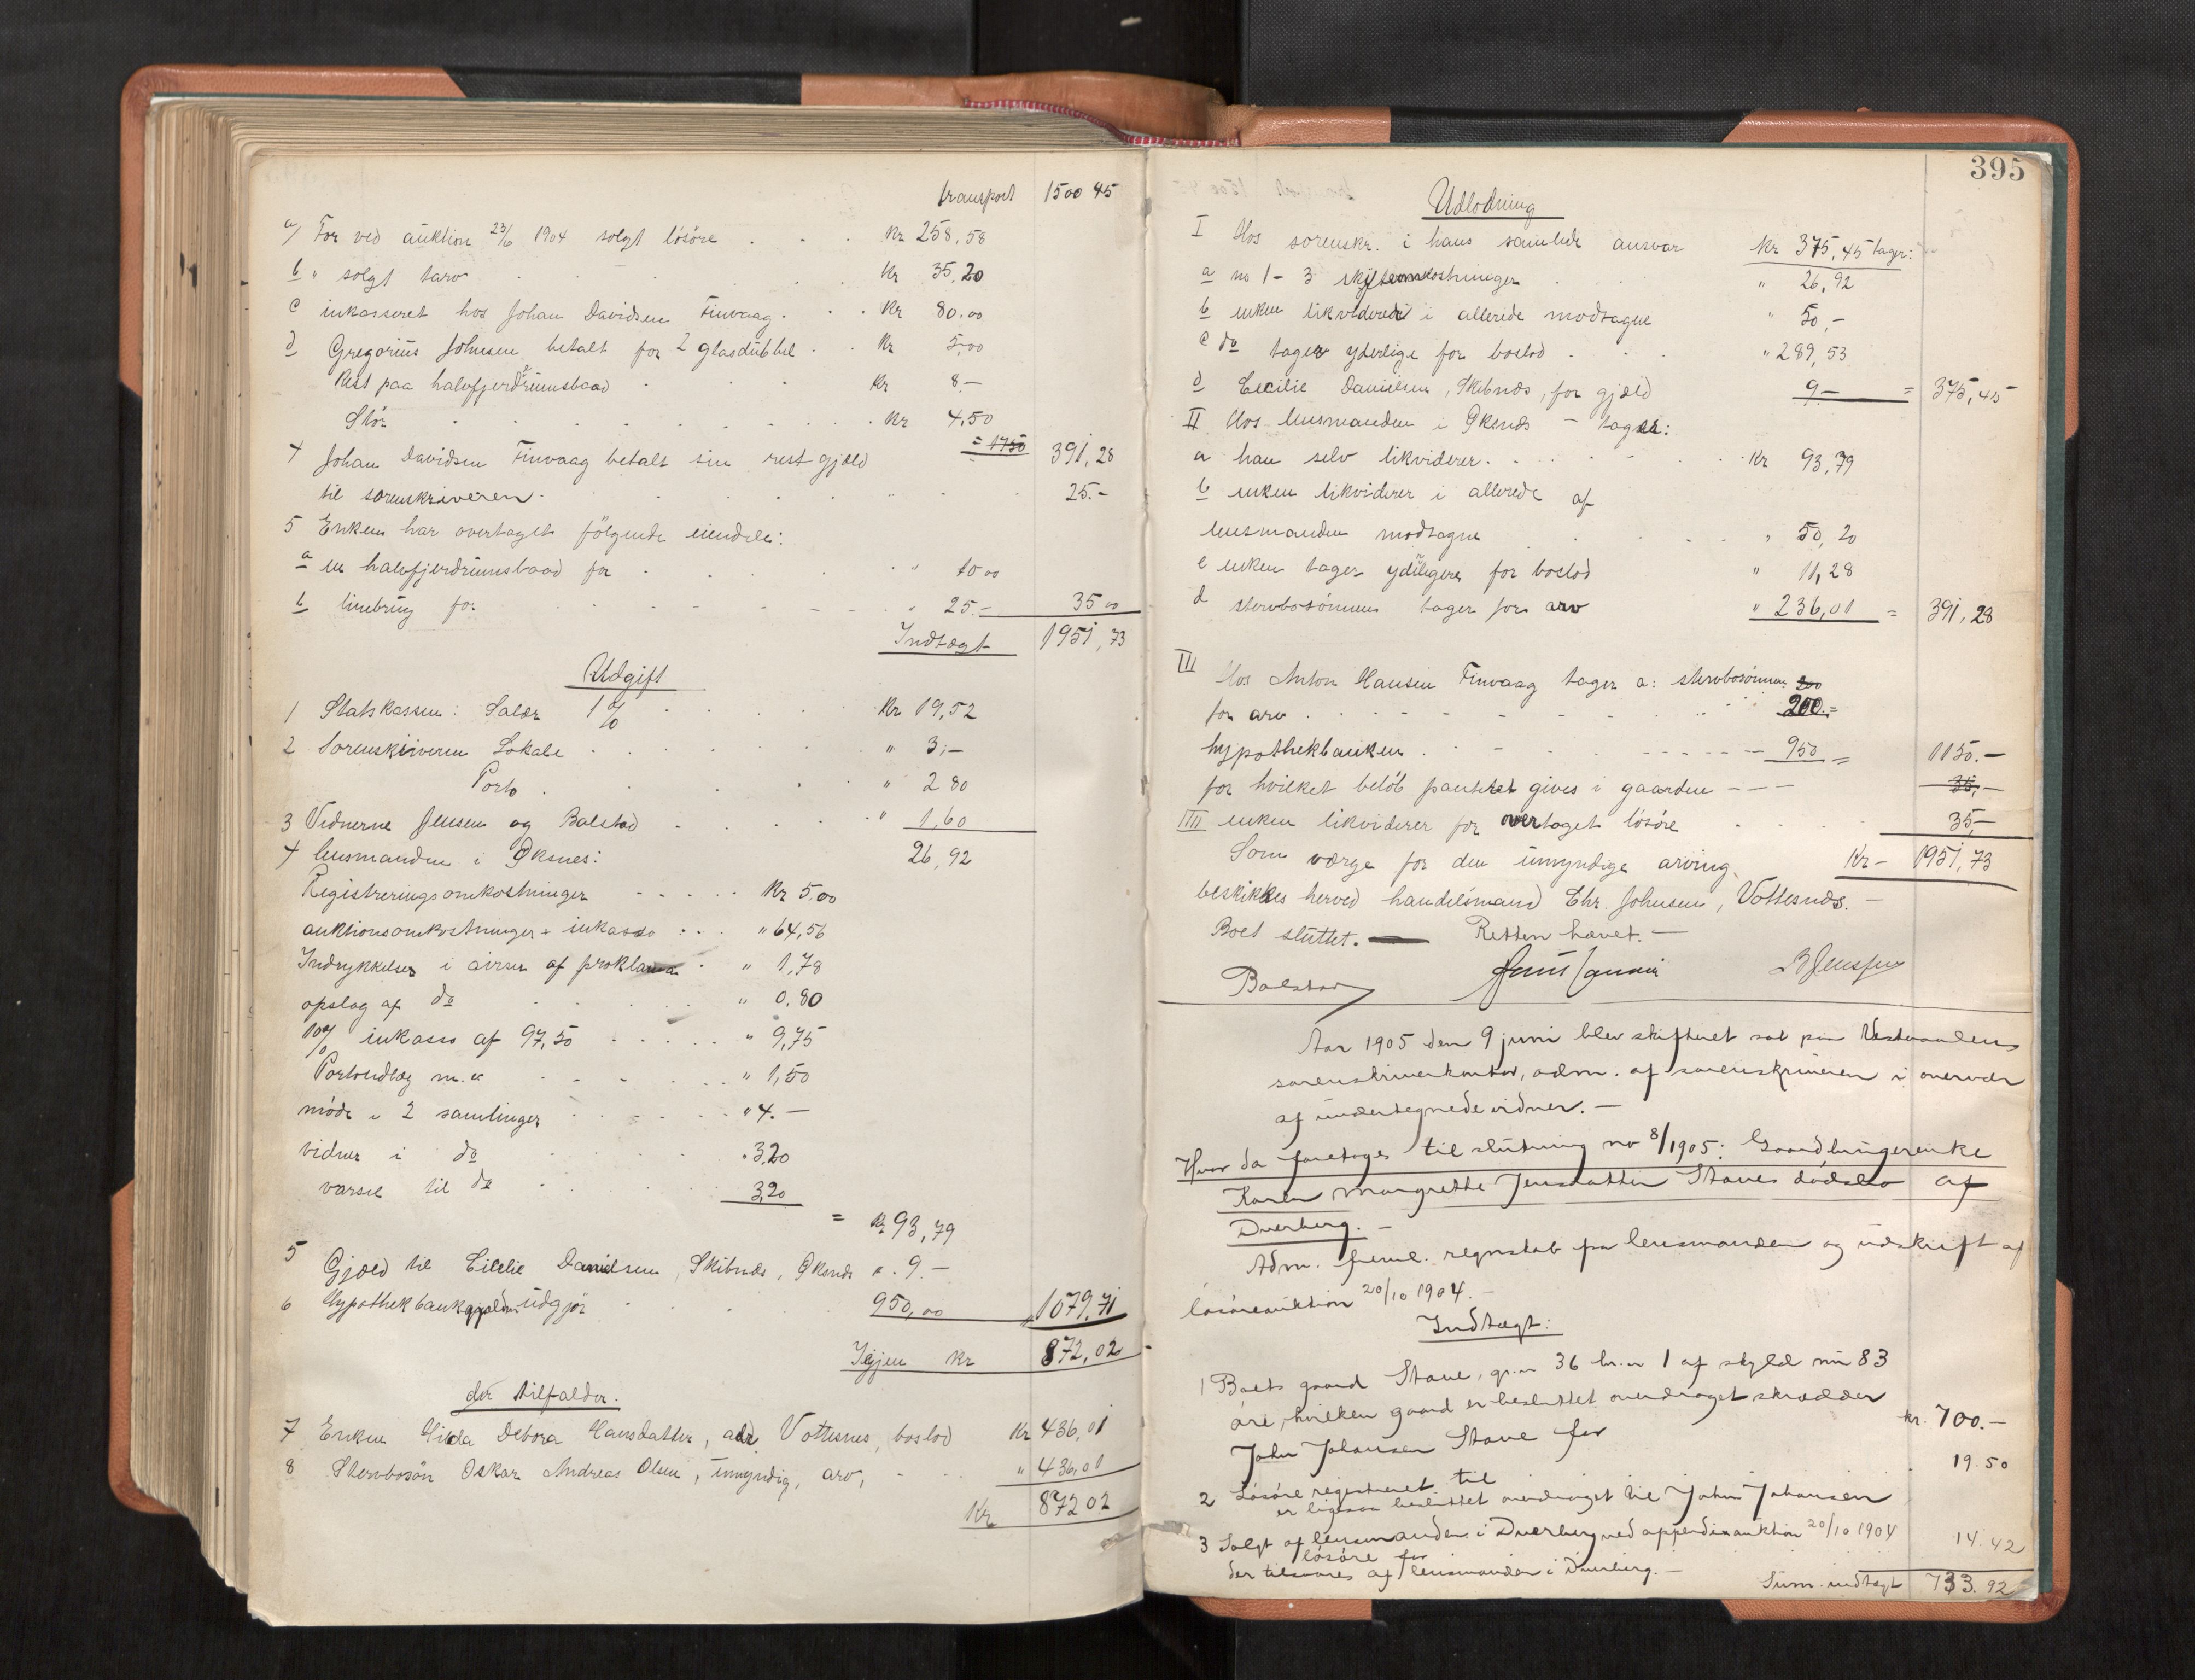 transport 1500 45
a/ For ved auktion 23/6 1904 solgt lösöre . . . Kr 258,58
b " solgt tarv . . . Kr 35,20
c inkasseret hos Johan Davidsen Finvaag . . . Kr 80.00
d Gregorius Johnsen betalt for 2 glasdubbel . . Kr 5,00
Rest paa halvfjerderumsbaad . . . Kr 8.—
Stör . . . Kr 4,50
= 1750 391,28
4 Johan Davidsen Finvaag betalt sin rest gjæld
til sorenskriveren . . . 25.-
5 Enken har overtaget fölgende eiendele:
a en halvfjerdrumsbaad for . . . " 10 00
b linebrug for . . . " 25.— 35 00
Indtægt 1951,73
Udgift
1 Statskassen: Salær 1 % . . . Kr 19,52
2 Sorenskriveren Lokale . . . " 3,—
Porto . . . " 2 80
3 Vidnerne Jensen og Balstad . . . " 1,60
4 lensmanden i Øksnes: 26,92
Registreringsomkostninger - - - - - Kr 5,00
auktionsomkostninger + inkasso . . . " 64,56
Indrykkelser i aviser af proklama . " 1,78
opslag af do . . . " 0,80
10 % inkasso af 97,50 . . . " 9,75
Portoudlæg m. v. . . . " 1,50
möde i 2 samlinger . . . " 4.—
vidner i do . . . " 3,20
varsel til do . . . 3,20
= Kr 93,79
5 Gjæld til Cecilie Danielsen, Skibnæs, Øksnæs ". 9.—
6 Hypothekbankgjælden udgjör . . . 950,00 " 1079,71
Igjen kr 872,02
der tilfalder.
7 Enken Hilda Debora Hansdatter, adr. Vottesnes, boslod Kr 436,01
8 Stervbosön Oskar Andreas Olsen, umyndig, arv, - - " 436,01
Kr 872 02
395
Udlodning
I Hos sorenskr. i hans samlede ansvar Kr 375,45 tager:
a no 1 - 3 skifteomkostninger . . . " 26,92
b enken likviderer i allerede modtagne " 50,-
c do tager yderlige for boslod . . . " 289,53
d Cecilie Danielsen, Skibnæs, for gjæld 9.— = 375,45
II Hos lensmanden i Øksnæs — tager:
a han selv likviderer . . . Kr 93,79
b enken likviderer i allerede af
lensmanden modtagne . . . " 50,20
c enken tager yderligere for boslod " 11,28
d stervbosönnen tager for arv " 236,01 = 391,28
III Hos Anton Hansen Finvaag tager a: stervbosönnen 200
for arv . . . 200.=
hypothekbanken . . . 950 = 1150.—
for hvilket belöb panteret gives i gaarden - - - 35,—
IIII enken likviderer for overtaget lösöre . . . 35,—
Som værge for den umyndige arving Kr - 1951,73
beskikkes herved handelsmand Chr. Johnsen, Vottesnæs. —
Boet sluttet. — Retten hævet. —
Balstad B Jensen
Aar 1905 den 9 juni blev skifteret sat paa Vesteraalens
sorenskriverkontor, adm. af sorenskriveren i overvær
af undertegnede vidner. —
Hvor da foretoges til slutning no 8/1905: Gaardbrugerenke
Karen Margrethe Jensdatter Staves dödsbo af
Dverberg. —
Adm. freml. regnskab fra lensmanden og udskrift af
lösöreauktion 20/10 1904. —
Indtægt:
1 Boets gaard Stave, gr. nr 36 br. nr 1 af skyld mk 83
öre, hvilken gaard er besluttet overdraget skrædder
John Johansen Stave for kr. 700.—
2 Lösöre registreret til 19.50
er ligesaa besluttet overdraget til John Johansen
3 Solgt af lensmanden i Dverberg ved appendixauktion 20/10 1904
lösöre for 14.42
der tilsvares af lensmanden i Dverberg. —
Sum indtægt 733.92